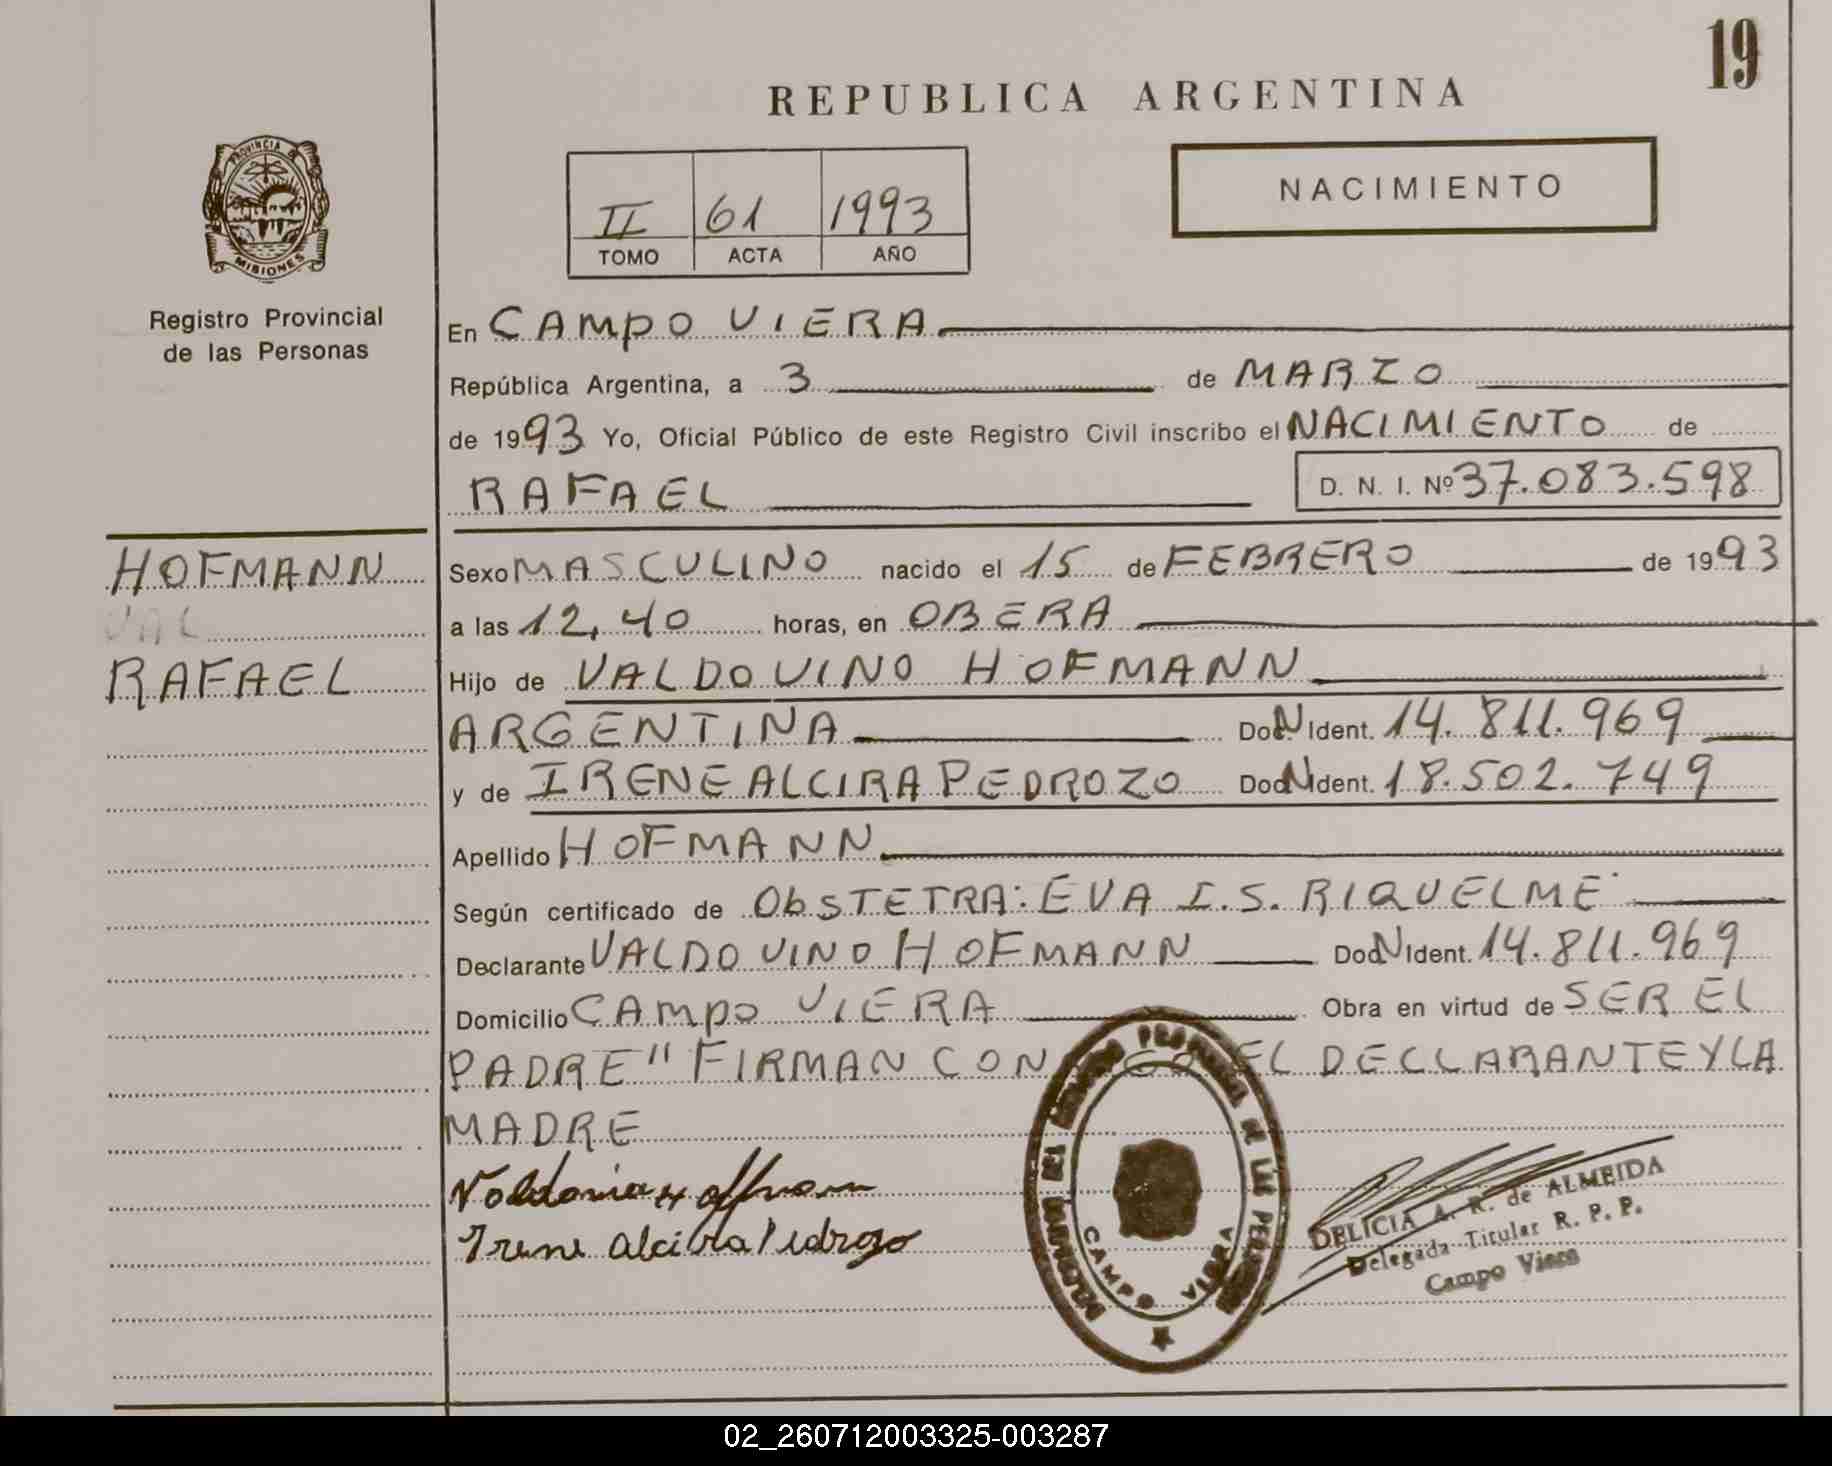 19
REPUBLICA ARGENTINA
PROVINCIA D
MISIONES
Registro Provincial
de las Personas
II 61 1993
TOMO ACTA AÑO
NACIMIENTO
En CAMPO VIERA
República Argentina, a 3 de MARZO
de 1993 Yo, Oficial Público de este Registro Civil inscribo el NACIMIENTO de
RAFAEL D. N. I. Nº 37.083.598
HOFMANN
VAL
RAFAEL
Sexo MASCULINO nacido el 15 de FEBRERO de 1993
a las 12,40 horas, en OBERA
Hijo de VALDOVINO HOFMANN
ARGENTINA Doc. N Ident. 14.811.969
y de IRENE ALCIRA PEDROZO Doc. N Ident. 18.502.749
Apellido HOFMANN
Según certificado de ObSTETRA: EVA I.S. RIQUELME
Declarante VALDOVINO HOFMANN Doc. N Ident. 14.811.969
Domicilio CAMPO VIERA Obra en virtud de SER EL
PADRE" FIRMAN CON EL DECLARANTE Y LA
MADRE
Irene Alcira Pedrozo
CAMPO VIERA
DELICIA A. R. de ALMEIDA
Delegada Titular R. P. P.
Campo Viera
02_260712003325-003287